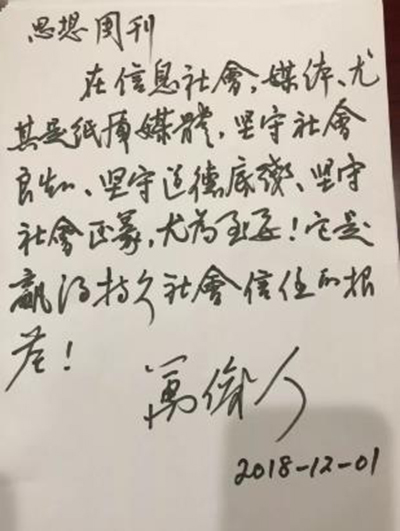 思想周刊
在信息社會，媒体、尤
其是纸质媒體，坚守社會
良知、坚守道德底线、坚守
社會正義，尤為重要！它是
贏得持久社會信任的根
基！
萬俊人
2018-12-01